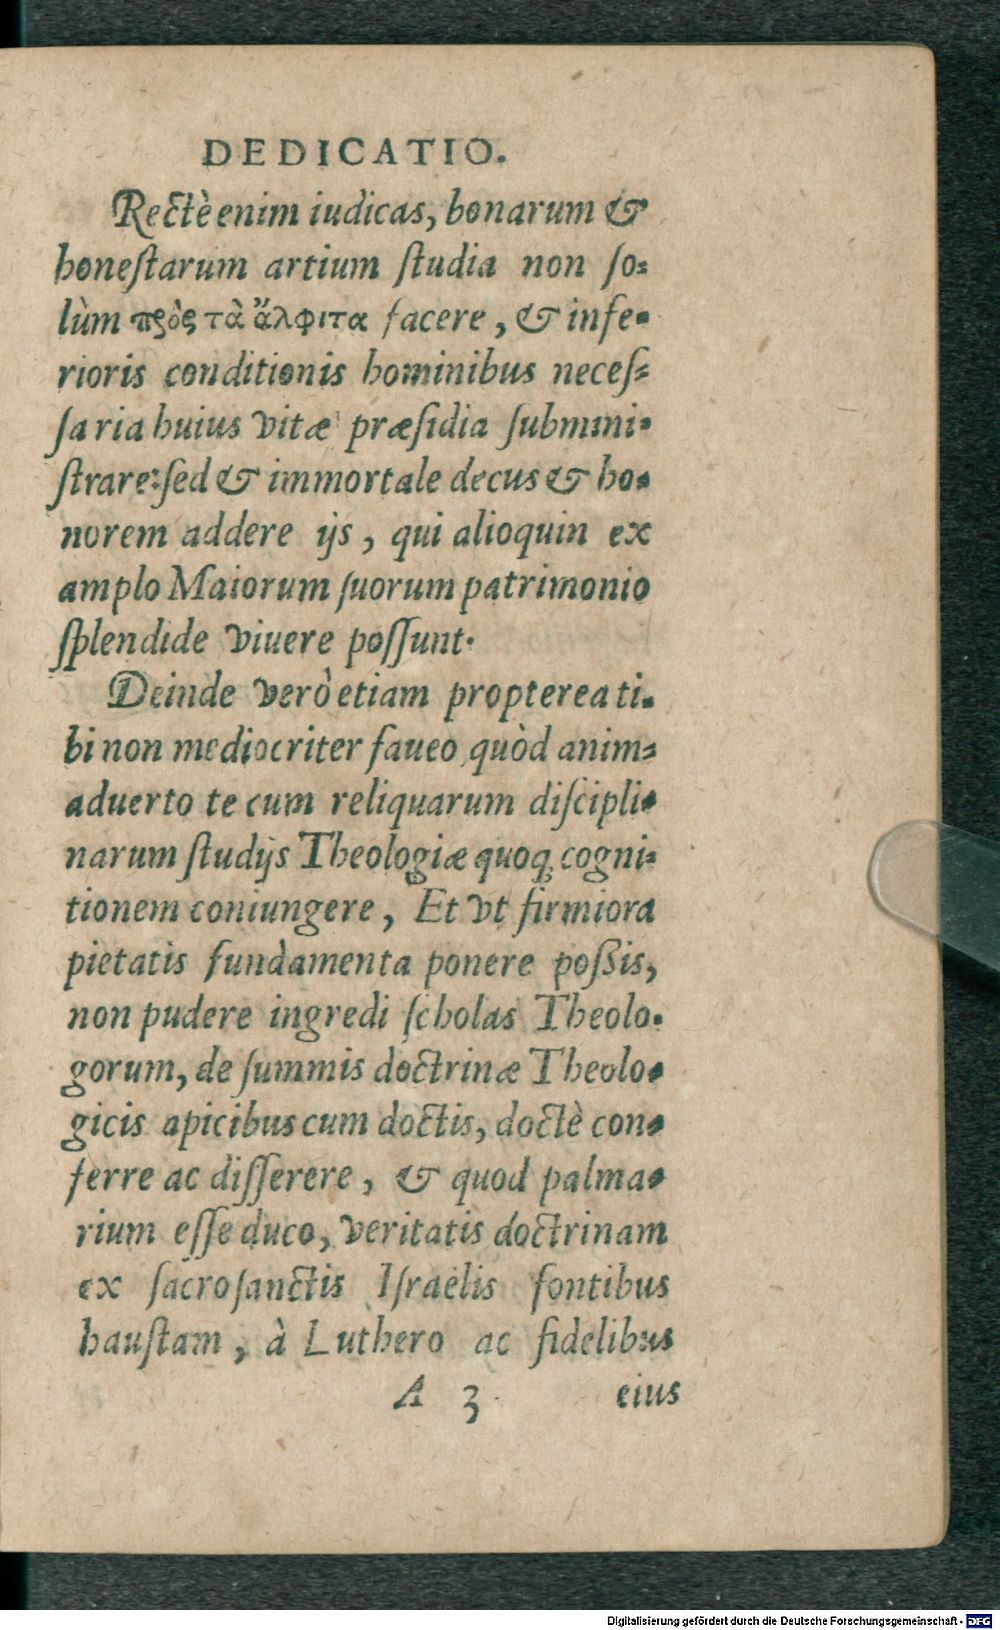 DEDICATIO.
Rectè enim iudicas, bonarum &
honeſtarum artium ſtudia non ſo⸗
lùm πρὸς τὰ ἄλφιτα facere, & infe⸗
rioris conditionis hominibus neceſ⸗
ſaria huius vitæ præſidia ſubmini⸗
ſtrare: ſed & immortale decus & ho⸗
norem addere ijs, qui alioquin ex
amplo Maiorum ſuorum patrimonio
ſplendide viuere poſſunt.
Deinde verò etiam propterea ti⸗
bi non mediocriter faueo, quòd anim⸗
aduerto te cum reliquarum diſcipli⸗
narum ſtudijs Theologiæ quoq; cogni⸗
tionem coniungere, Et vt firmiora
pietatis fundamenta ponere poßis,
non pudere ingredi ſcholas Theolo⸗
gorum, de ſummis doctrinæ Theolo⸗
gicis apicibus cum doctis, doctè con⸗
ferre ac diſſerere, & quod palma⸗
rium eſſe duco, veritatis doctrinam
ex ſacroſanctis Iſraëlis fontibus
hauſtam, à Luthero ac fidelibus
A 3 eius
Digitalisierung gefördert durch die Deutsche Forschungsgemeinschaft - DFG